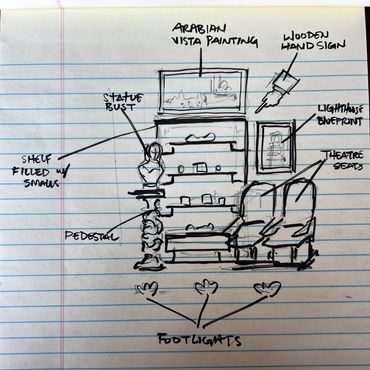 ARABIAN
VISTA PAINTING
WOODEN
HAND SIGN
STATUE
BUST
LIGHTHOUSE
BLUEPRINT
SHELF
FILLED W/
SMALLS
THEATRE
SEATS
PEDESTAL
FOOTLIGHTS